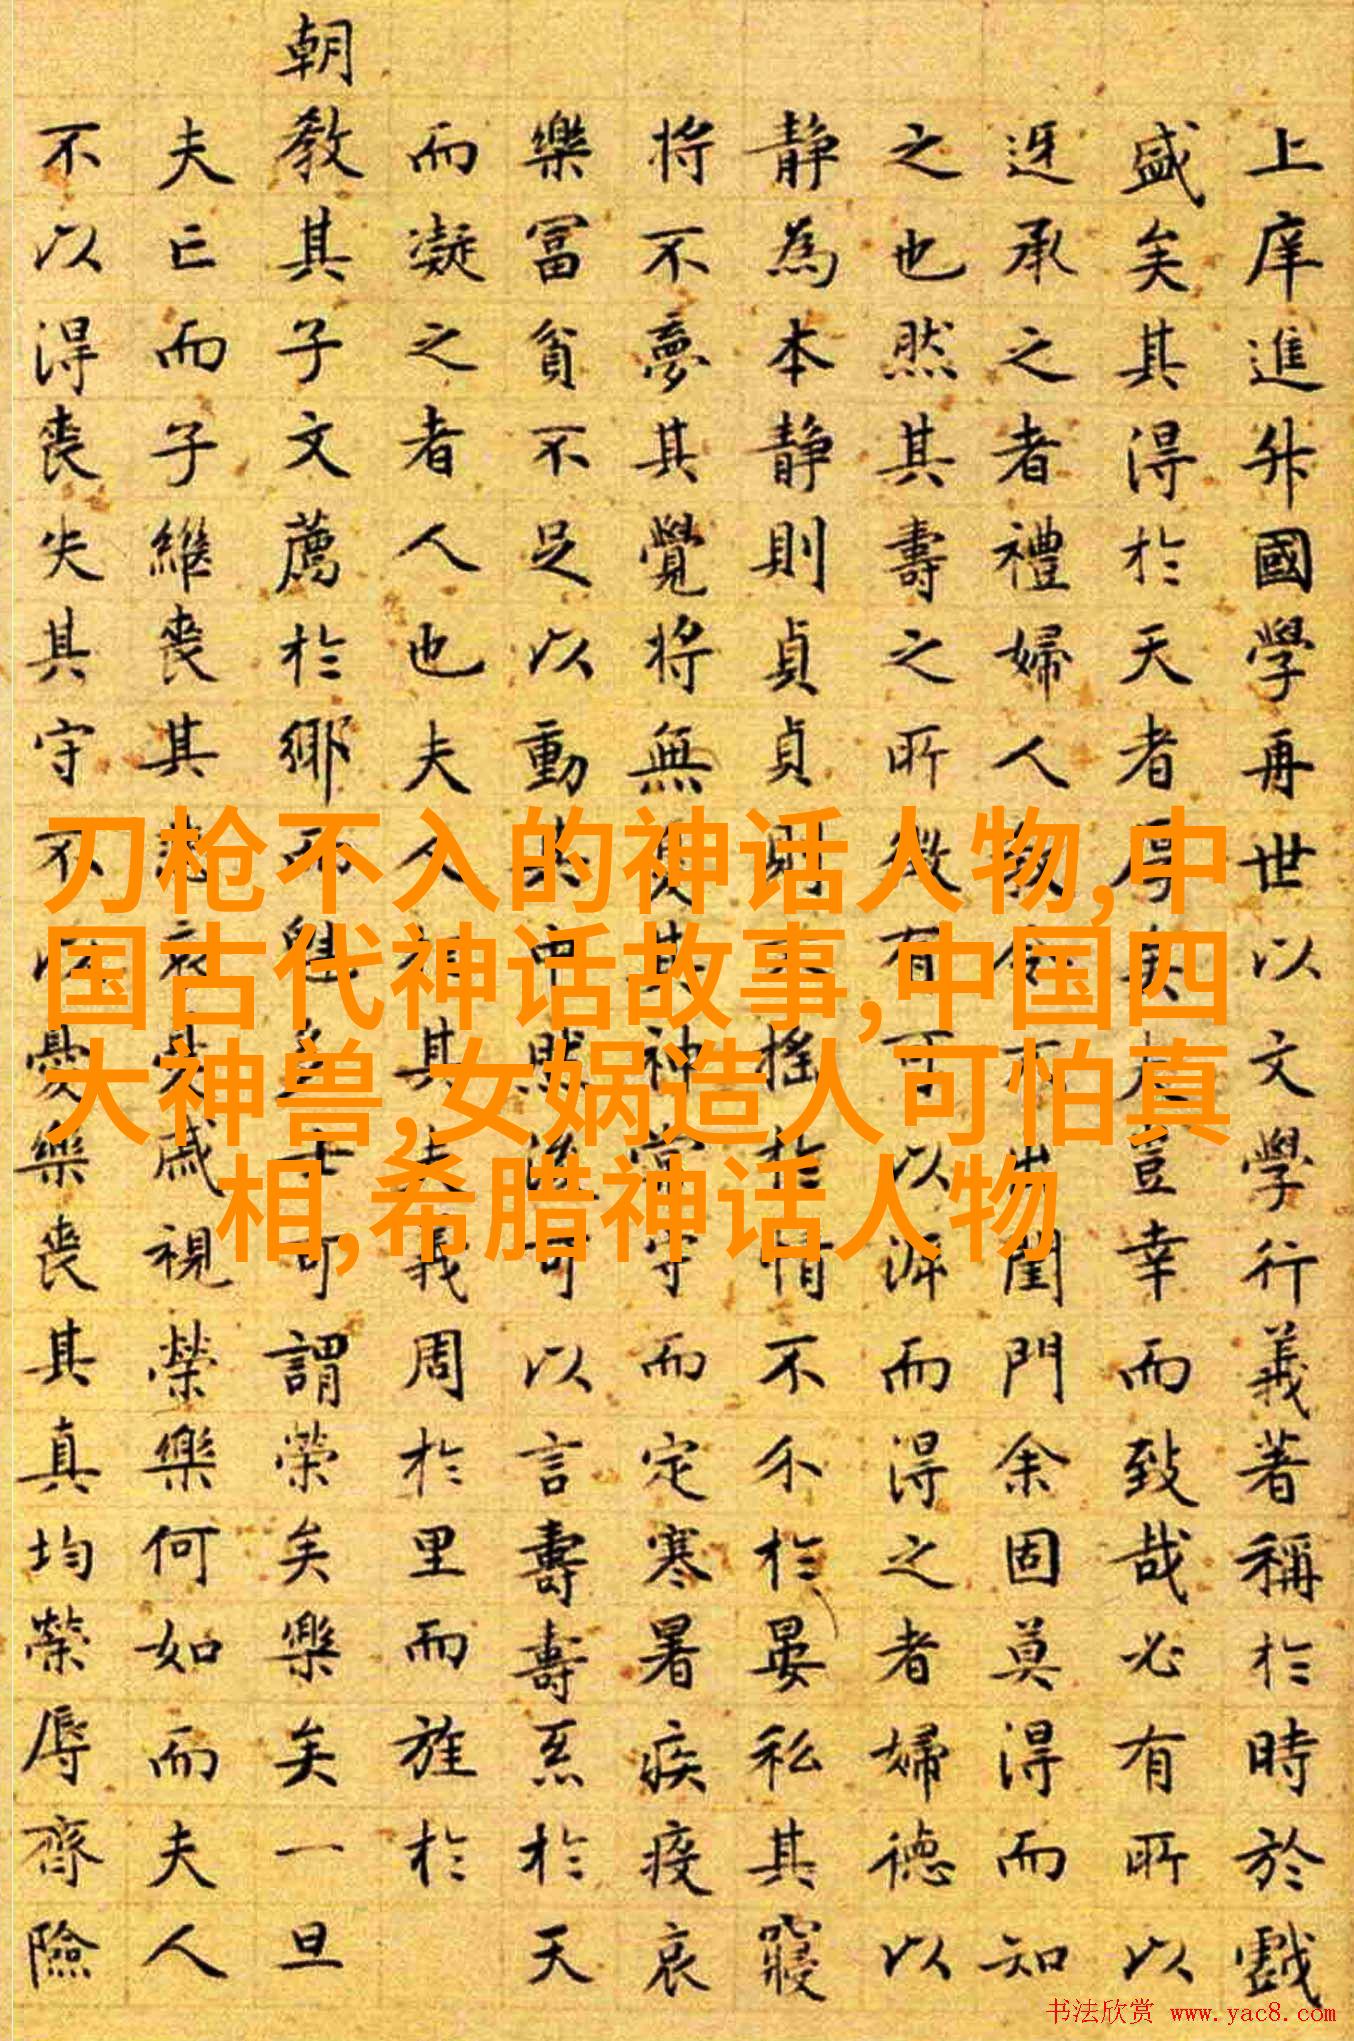 上庠進升國學再世以文學行義著稱於時於戲
盛矣其得於天者厚矣夫豈幸而致哉必有所以
迓承之者禮婦人教令不出閨門余固莫得而知
之也然其壽之所徵有可以泝而得之者婦德以
静為本静則貞貞則不搖於情不尒於晏私其寢
將不夢其覺將無其神常守而定寒暑疾疫哀
樂冨貧不足以動其中然後可以言壽壽系於天
而凝之者人也夫人視其夫義周於里而旌於
朝教其子文薦於鄉而魁多士可謂榮矣樂矣一旦
夫亡而子繼喪其悲哀戚視榮樂何如而夫人
不以得喪失其守不以憂樂喪其真均榮辱齊險
刀枪不入的神话人物,中
国古代神话故事,中国四
大神兽,女娲造人可怕真
相,希腊神话人物
书法欣赏 www.yac8.com